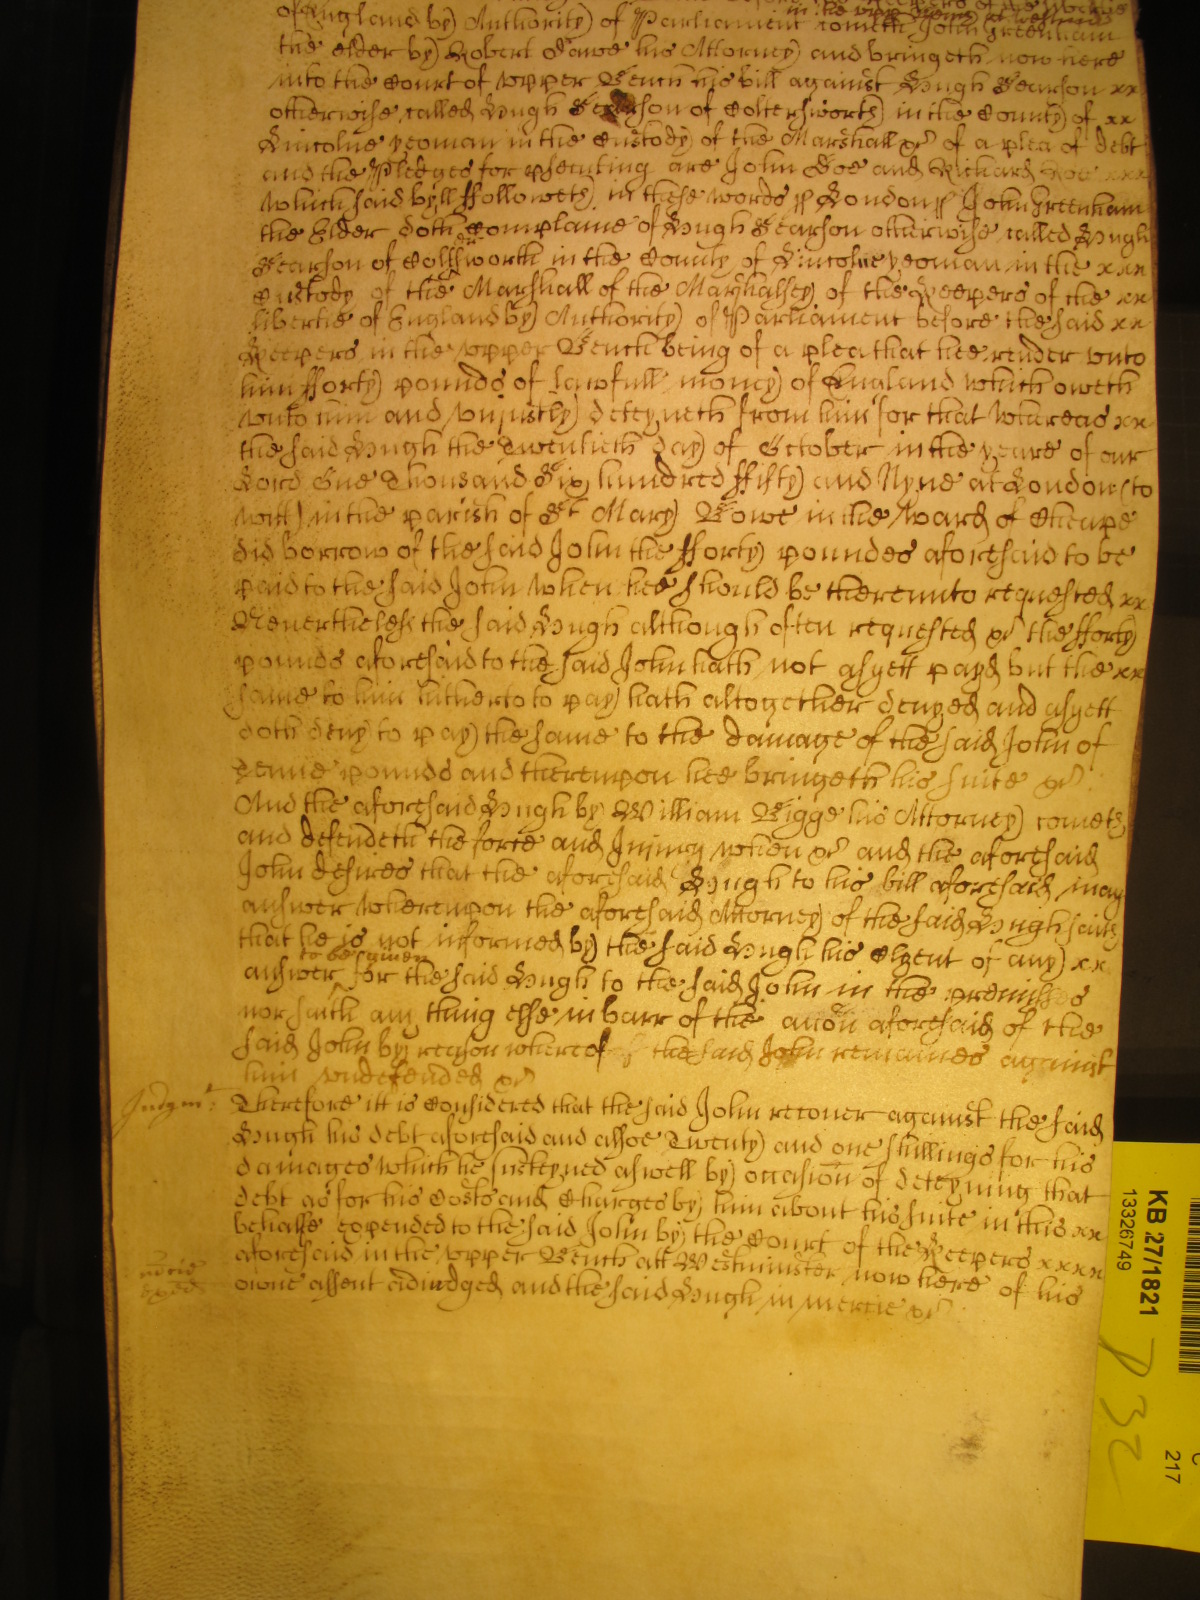 of England by Authority of Parliament cometh John Greenham
the elder by Robert Dawe his Attorney and bringeth now here
into the Court of vpper Bench his bill against Hugh Pearson xx
otherwise called Hugh Pearson of Coltersworth in the County of xx
Lincolne yeoman in the Custody of the Marshall &c of a plea of debt
and the Pledges for psecuting are John Doe and Richard Roe xxx
Which said byll ffolloweth in these words ss London ss John Greenham
the Elder doth Complaine of Hugh Pearson otherwise called Hugh
Pearson of Colsterworth in the County of Lincolne yeoman in the xxx
Custody of the Marshall of the Marshalsey of the Keepers of the xx
libertie of England by Authority of Parliament before the said xx
Keepers in the vpper Bench being of a plea that hee render vnto
him fforty pounds of lawfull money of England which oweth
vnto him and vnjustly deteyneth from him for that whereas xx
the said Hugh the Twentieth day of October in the yeare of our
Lord One Thousand Six hundred ffifty and Nyne at London (to
witt) in the parish of St Mary Bowe in the Ward of Cheape
did borrow of the said John the fforty poundes aforesaid to be
paid to the said John when hee should be thereunto requested xx
Neverthelesse the said Hugh although often requested &c the fforty
pounds aforesaid to the said John hath not as yett payd but the xx
same to him hitherto to pay hath altogether denyed and as yett
doth deny to pay the same to the damage of the said John of
tenne pounds and thereupon hee bringeth his suite &c
And the aforesaid Hugh by William Bigge his Attorney cometh
and defendeth the force and Injury when &c and the aforesaid
John desires that the aforesaid Hugh to his bill aforesaid may
answer Whereupon the aforesaid Attorney of the said Hugh saith
that he is not informed by the said Hugh his Clyent of any xx
to be given
answer for the said Hugh to the said John in the premisses
nor saith any thing else in barr of the accon aforesaid of the
said John by reason whereof the said John remaines against
him vndefended &c
Judgmt: Therefore itt is Considered that the said John recouer against the said
Hugh his debt aforesaid and alsoe Twenty and one shillings for his
damages which he susteyned aswell by occasion of deteyning that
debt as for his Costs and Charges by him about his suite in this xx
behalfe expended to the said John by the Court of the Keepers xxxx
aforesaid in the vpper Bench att Westminster now here of his
owne assent adiudged and the said Hugh in mercie &c
KB 27/1821
13326749
217
P 32